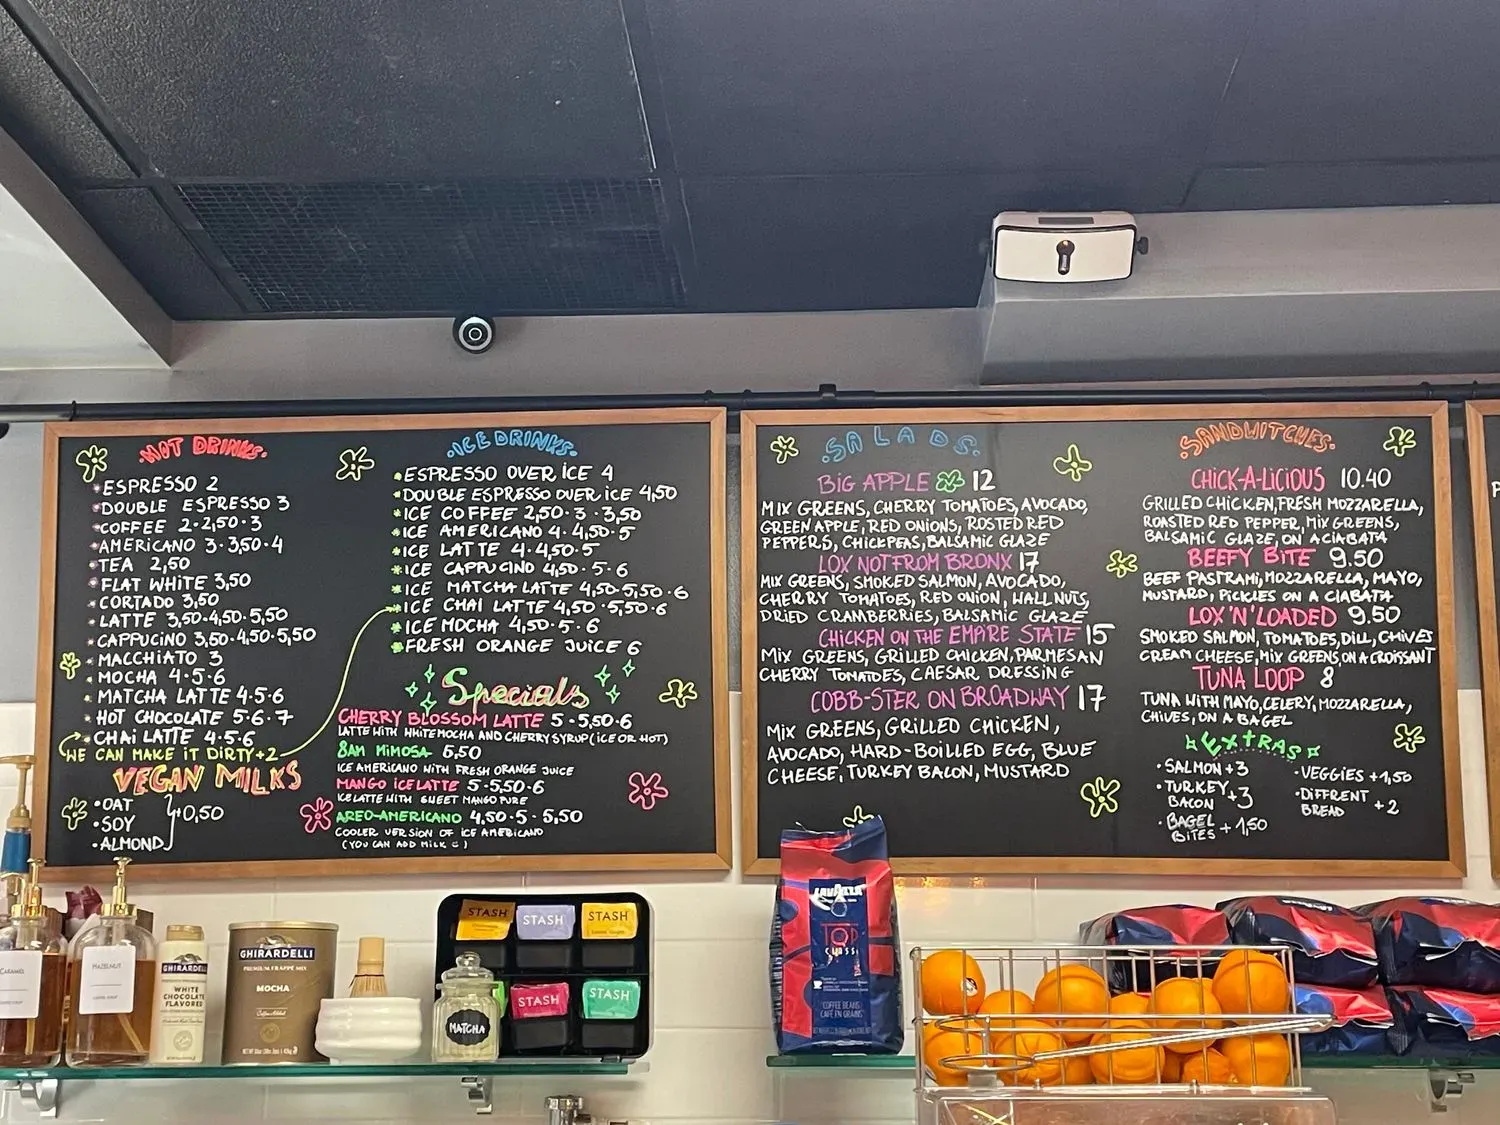 HOT DRINKS
ESPRESSO 2
DOUBLE ESPRESSO 3
COFFEE 2·2,50·3
AMERICANO 3·3,50·4
TEA 2,50
FLAT WHITE 3,50
CORTADO 3,50
LATTE 3,50·4,50·5,50
CAPPUCINO 3,50·4,50·5,50
MACCHIATO 3
MOCHA 4·5·6
MATCHA LATTE 4·5·6
HOT CHOCOLATE 5·6·7
CHAI LATTE 4·5·6
WE CAN MAKE IT DIRTY +2
VEGAN MILKS
·OAT
·SOY
·ALMOND
+0,50
·ICE DRINKS·
ESPRESSO OVER ICE 4
DOUBLE ESPRESSO OVER ICE 4,50
ICE COFFEE 2,50·3·3,50
ICE AMERICANO 4·4,50·5
ICE LATTE 4·4,50·5
ICE CAPPUCINO 4,50·5·6
ICE MATCHA LATTE 4,50·5,50·6
ICE CHAI LATTE 4,50·5,50·6
ICE MOCHA 4,50·5·6
FRESH ORANGE JUICE 6
Specials
CHERRY BLOSSOM LATTE 5·5,50·6
LATTE WITH WHITE MOCHA AND CHERRY SYRUP (ICE OR HOT)
8AM MIMOSA 6,50
ICE AMERICANO WITH FRESH ORANGE JUICE
MANGO ICE LATTE 5·5,50·6
ICE LATTE WITH SWEET MANGO PURE
AREO-AMERICANO 4,50·5·5,50
COOLER VERSION OF ICE AMERICANO
(YOU CAN ADD MILK :)
SALADS.
BIG APPLE 12
MIX GREENS, CHERRY TOMATOES, AVOCADO,
GREEN APPLE, RED ONIONS, ROSTED RED
PEPPERS, CHICKPEAS, BALSAMIC GLAZE
LOX NOT FROM BRONX 17
MIX GREENS, SMOKED SALMON, AVOCADO,
CHERRY TOMATOES, RED ONION, WALLNUTS,
DRIED CRAMBERRIES, BALSAMIC GLAZE
CHICKEN ON THE EMPIRE STATE 15
MIX GREENS, GRILLED CHICKEN, PARMESAN
CHERRY TOMATOES, CAESAR DRESSING
COBB-STER ON BROADWAY 17
MIX GREENS, GRILLED CHICKEN,
AVOCADO, HARD-BOILLED EGG, BLUE
CHEESE, TURKEY BACON, MUSTARD
·SANDWITCHES·
CHICK-A-LICIOUS 10.40
GRILLED CHICKEN, FRESH MOZZARELLA,
ROASTED RED PEPPER, MIX GREENS,
BALSAMIC GLAZE, ON A CIABATA
BEEFY BITE 9.50
BEEF PASTRAMI, MOZZARELLA, MAYO,
MUSTARD, PICKLES ON A CIABATA
LOX'N'LOADED 9.50
SMOKED SALMON, TOMATOES, DILL, CHIVES
CREAM CHEESE, MIX GREENS, ON A CROISSANT
TUNA LOOP 8
TUNA WITH MAYO, CELERY, MOZZARELLA,
CHIVES, ON A BAGEL
EXTRAS
·SALMON +3
·TURKEY BACON +3
·BAGEL BITES +1,50
·VEGGIES +1,50
·DIFFRENT BREAD +2
CARAMEL
HAZELNUT
GHIRARDELLI
WHITE
CHOCOLATE
FLAVORED
GHIRARDELLI
PREMIUM FRAPPÉ MIX
MOCHA
MATCHA
STASH
STASH
STASH
STASH
STASH
LAVAZZA
TOP
CLASS
COFFEE BEANS
CAFÉ EN GRAINS